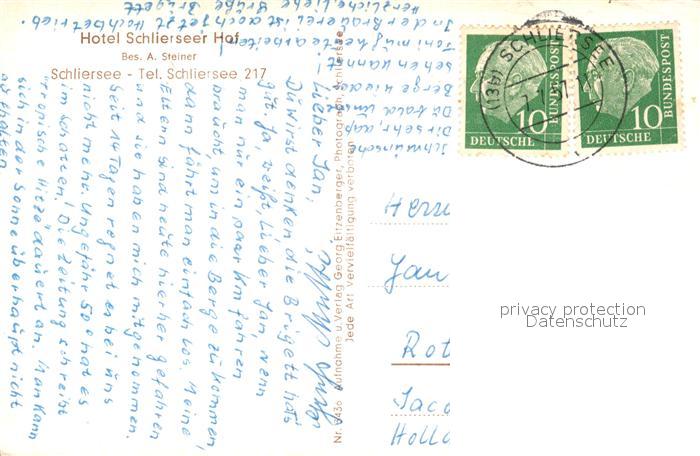 Hotel Schlierseer Hof
Bes. A. Steiner
Schliersee - Tel. Schliersee 217
Lieber Jan,
Du wirst denken die Brigett hat's
gut. Ja, weißt, Lieber Jan, wenn
man nur ein paar km fahren
braucht, um in die Berge zu kommen,
dann fährt man einfach los. Meine
Eltern sind heute hierher gefahren
und sie haben mich mitgenommen.
Seit 14 Tagen regnet es bei uns
nicht mehr. Ungefähr 50° hat es
im Schatten! Die Zeitung schreibt
tropische Hitze dauert an. Man kann
sich in der Sonne überhaupt nicht
aufhalten
Ich wünsch
Dir sehr, daß
Du bald unsere
Berge wieder
sehen kannst!
Toni müßte arbeiten!
In der Brauerei ist doch jetzt Hochbetrieb.
Herzliche Liebe Grüße Brigett
Nr. 6436 Aufnahme u. Verlag Georg Eitzenberger, Photograph, Schliersee
Jede Art Vervielfältigung verboten
SCHLIERSEE
(13b)
10
BUNDESPOST
DEUTSCHE
10
BUNDESPOST
DEUTSCHE
Herrn
Jan
Rot
Jaco
Holla
privacy protection
Datenschutz